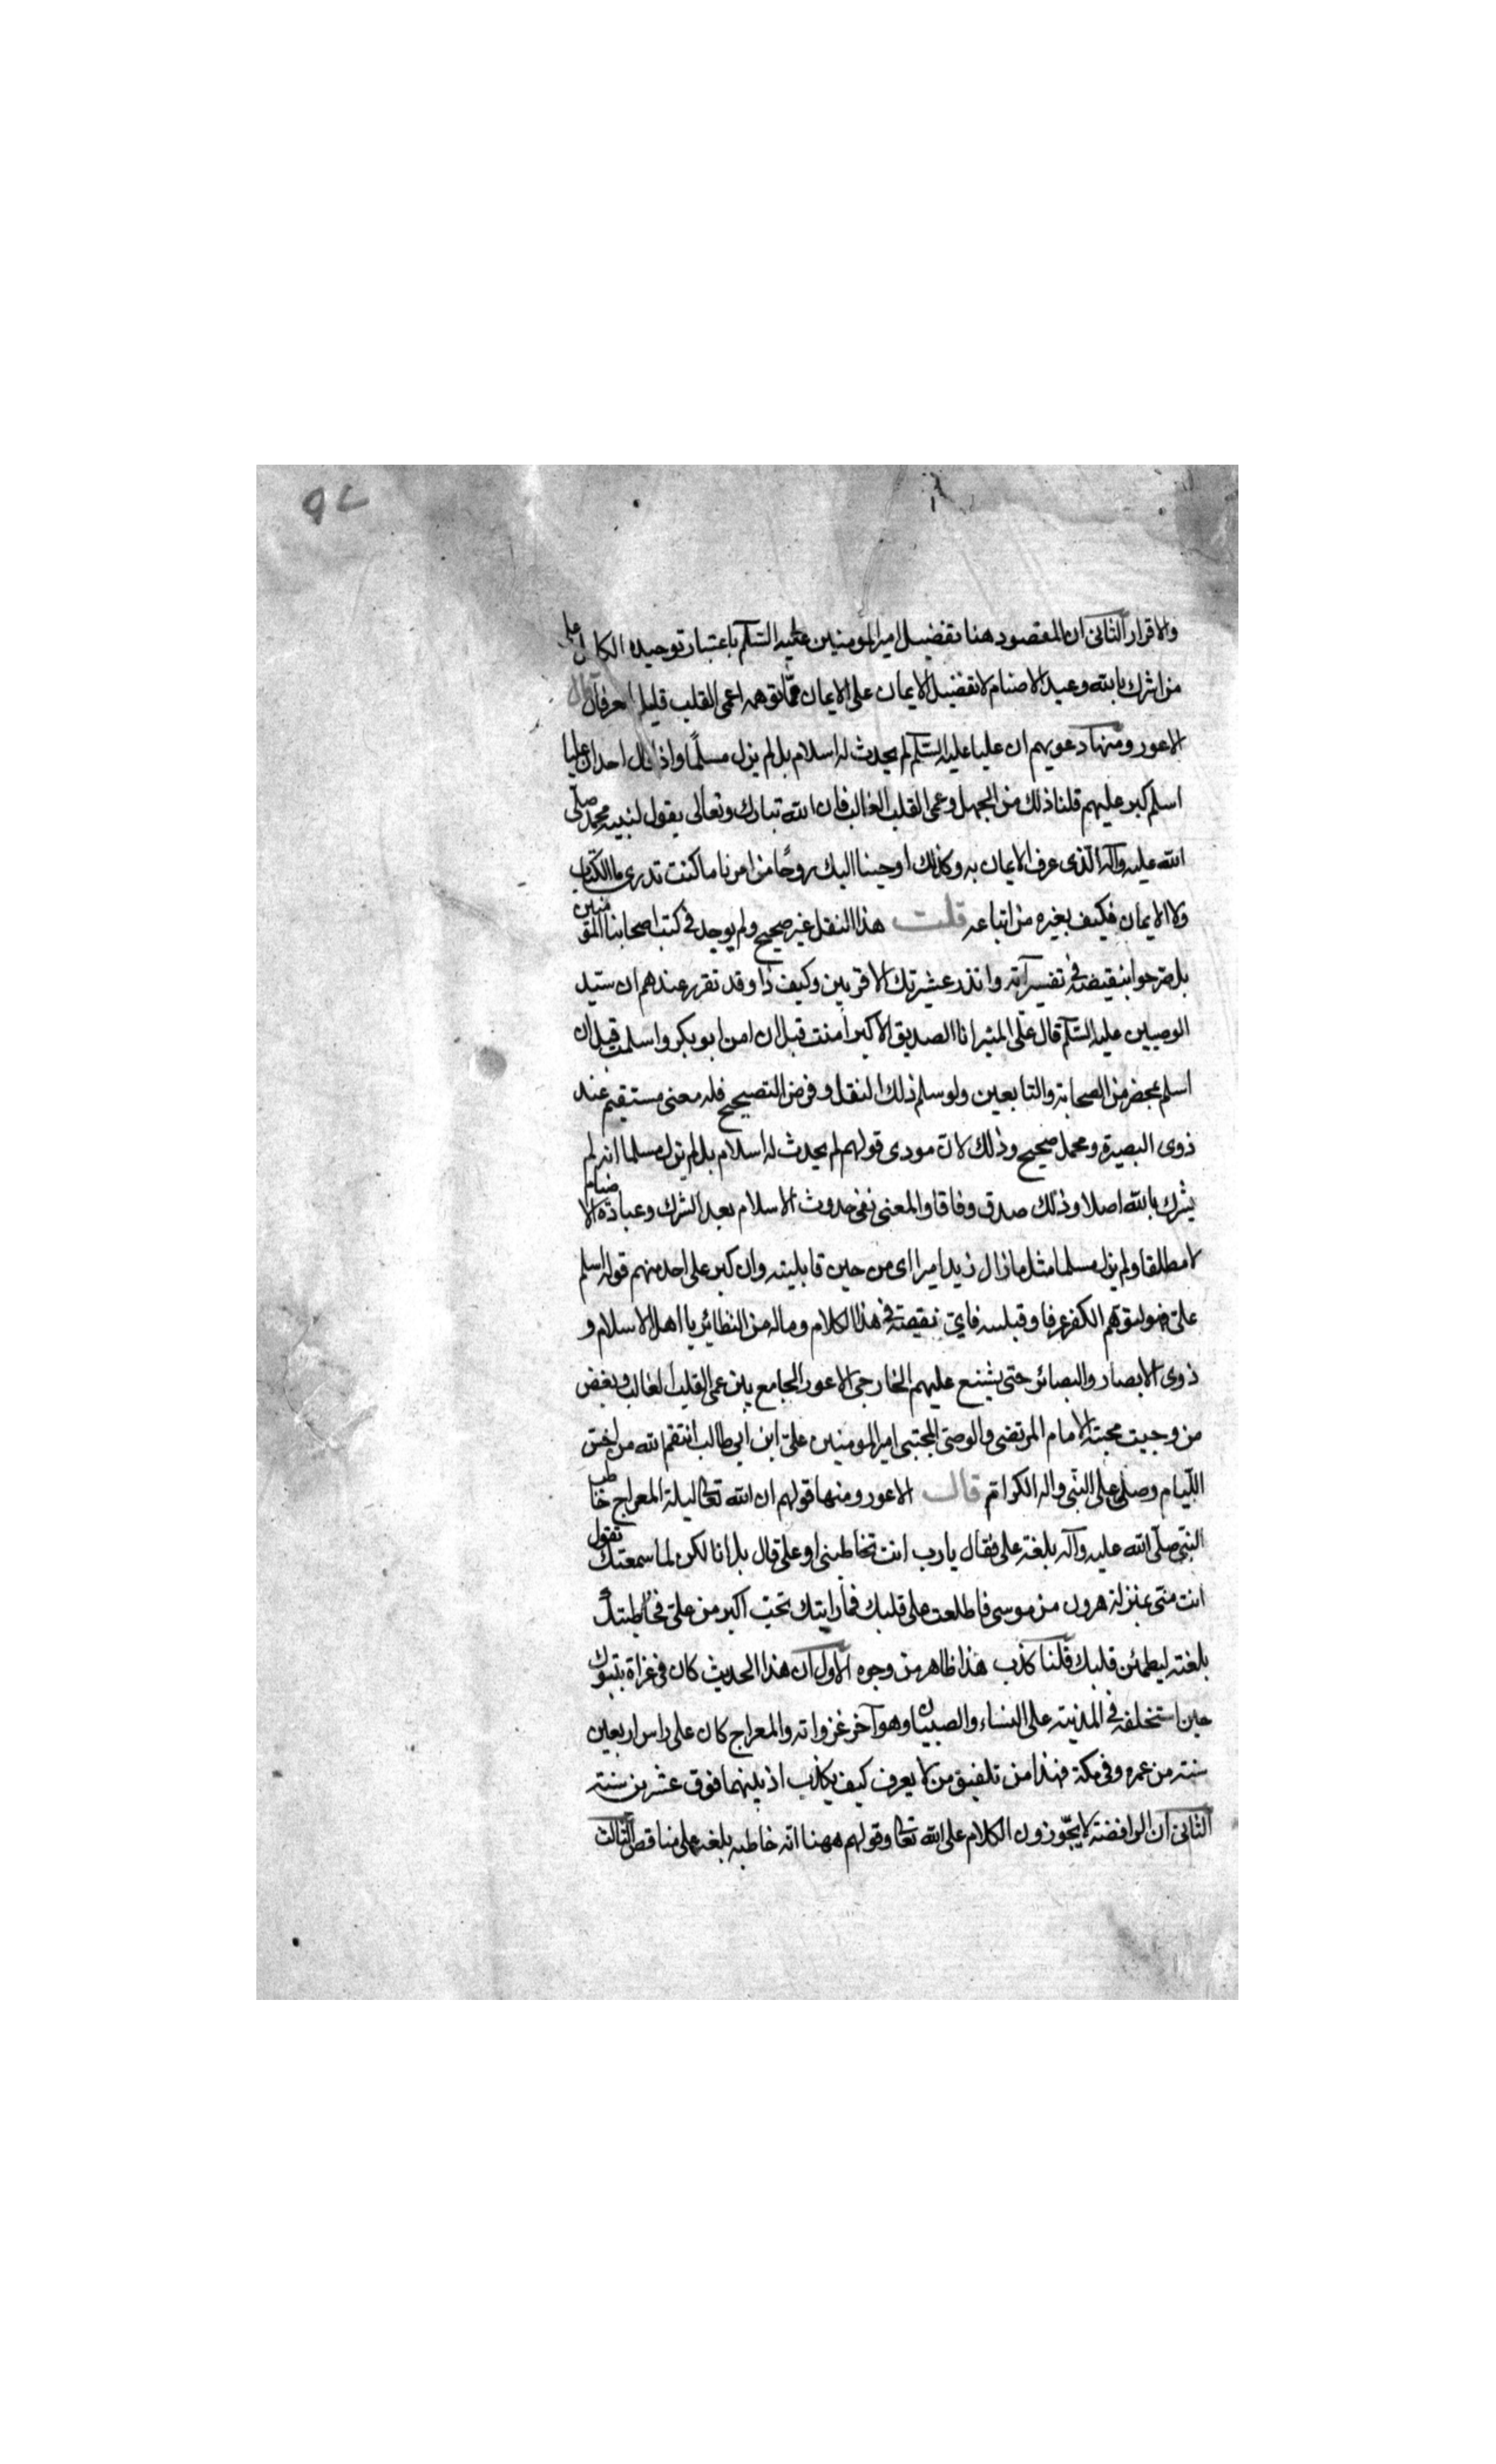 والاقرار الثانى ان المقصود هنا تفضيل امير المومنين عليه السّلم باعتبار توحيده الكامل على
من اشرك بالله وعبد الاصنام لا تفضيل الايمان على الايمان ممّا توهمه اعمى القلب قليل العرفان قال
الاعور ومنها دعويهم ان عليا عليه السّلم لم يحدث له اسلام بل لم يزل مسلمًا واذا قال احد ان عليا
اسلم كبر عليهم قلنا ذلك من الجهل وعمى القلب الغالب فان الله تبارك وتعالى يقول لنبيه محمد صلى
الله عليه وآله الذى عرف الايمان به وكذلك اوحينا اليك روحًا من امرنا ما كنت تدرى ما الكتاب
ولا الايمان فكيف بغيره من اتباعه قلت هذا النقل غير صحيح ولم يوجد فى كتب اصحابنا المقومنين
بل صرحوا بنقيضه فى تفسير آية وانذر عشيرتك الاقربين وكيف ذا وقد تقرر عندهم ان سيّد
الوصيين عليه السّلم قال على المنبر انا الصديق الاكبر آمنت قبل ان امن ابو بكر واسلمت قبل ان
اسلم بمحضر من الصحابة والتابعين ولو سلم ذلك النقل وفرض التصحيح فله معنى مستقيم عند
ذوى البصيرة ومحمل صحيح وذلك لان مودى قولهم لم يحدث له اسلام بل لم يزل مسلما انه لم
يشرك بالله اصلا وذلك صدق وفاقا والمعنى نفى حدوث الاسلام بعد الشرك وعبادة الاصنام
لا مطلقا ولم يزل مسلما مثل ما زال زيد اميرا اى من حين قابليته وان كبر على احد منهم قوله اسلم
على فهو لتوهم الكفر عرفا وقبلسه فاىّ نقيصة فى هذا الكلام وماله من النظائر يا اهل الاسلام و
ذوى الابصار والبصائر حتى يشنع عليهم الخارجى الاعور الجامع بين عمى القلب الغالب وبغض
من وجبت محبته الامام المرتضى والوصى المجتبى امير المومنين علىّ ابن ابى طالب انتقم الله من اخسّ
اللّيام وصلى على النبى واله الكرام ثم قال الاعور ومنها قولهم ان الله تعالى ليلة المعراج خاطب
النبى صلّى الله عليه وآله بلغة على فقال يا رب انت تخاطبنى او على قال بل انا لكن لما سمعتك تقول
انت منى بمنزلة هرون من موسى فاطلعت على قلبك فما رايتك تحبّ اكبر من علىّ فخاطبتك
بلغته ليطمئن قلبك قلنا كذب هذا ظاهر من وجوه الاول ان هذا الحديث كان فى غزاة تبوك
حين استخلفه فى المدينة على النساء والصبيان وهو آخر غزواته والمعراج كان على راس اربعين
سنة من عمره وفى مكة فهذا من تلفيق من لا يعرف كيف يكذب اذ بينهما فوق عشرين سنة
الثانى ان الرافضة لا يجّوزون الكلام على الله تعالى وقولهم ههنا انه خاطبه بلغة على مناقض الثالث